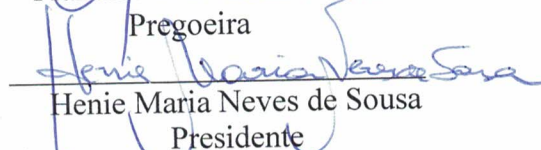 Pregoeira
Henie Maria Neves de Sousa
Henie Maria Neves de Sousa
Presidente